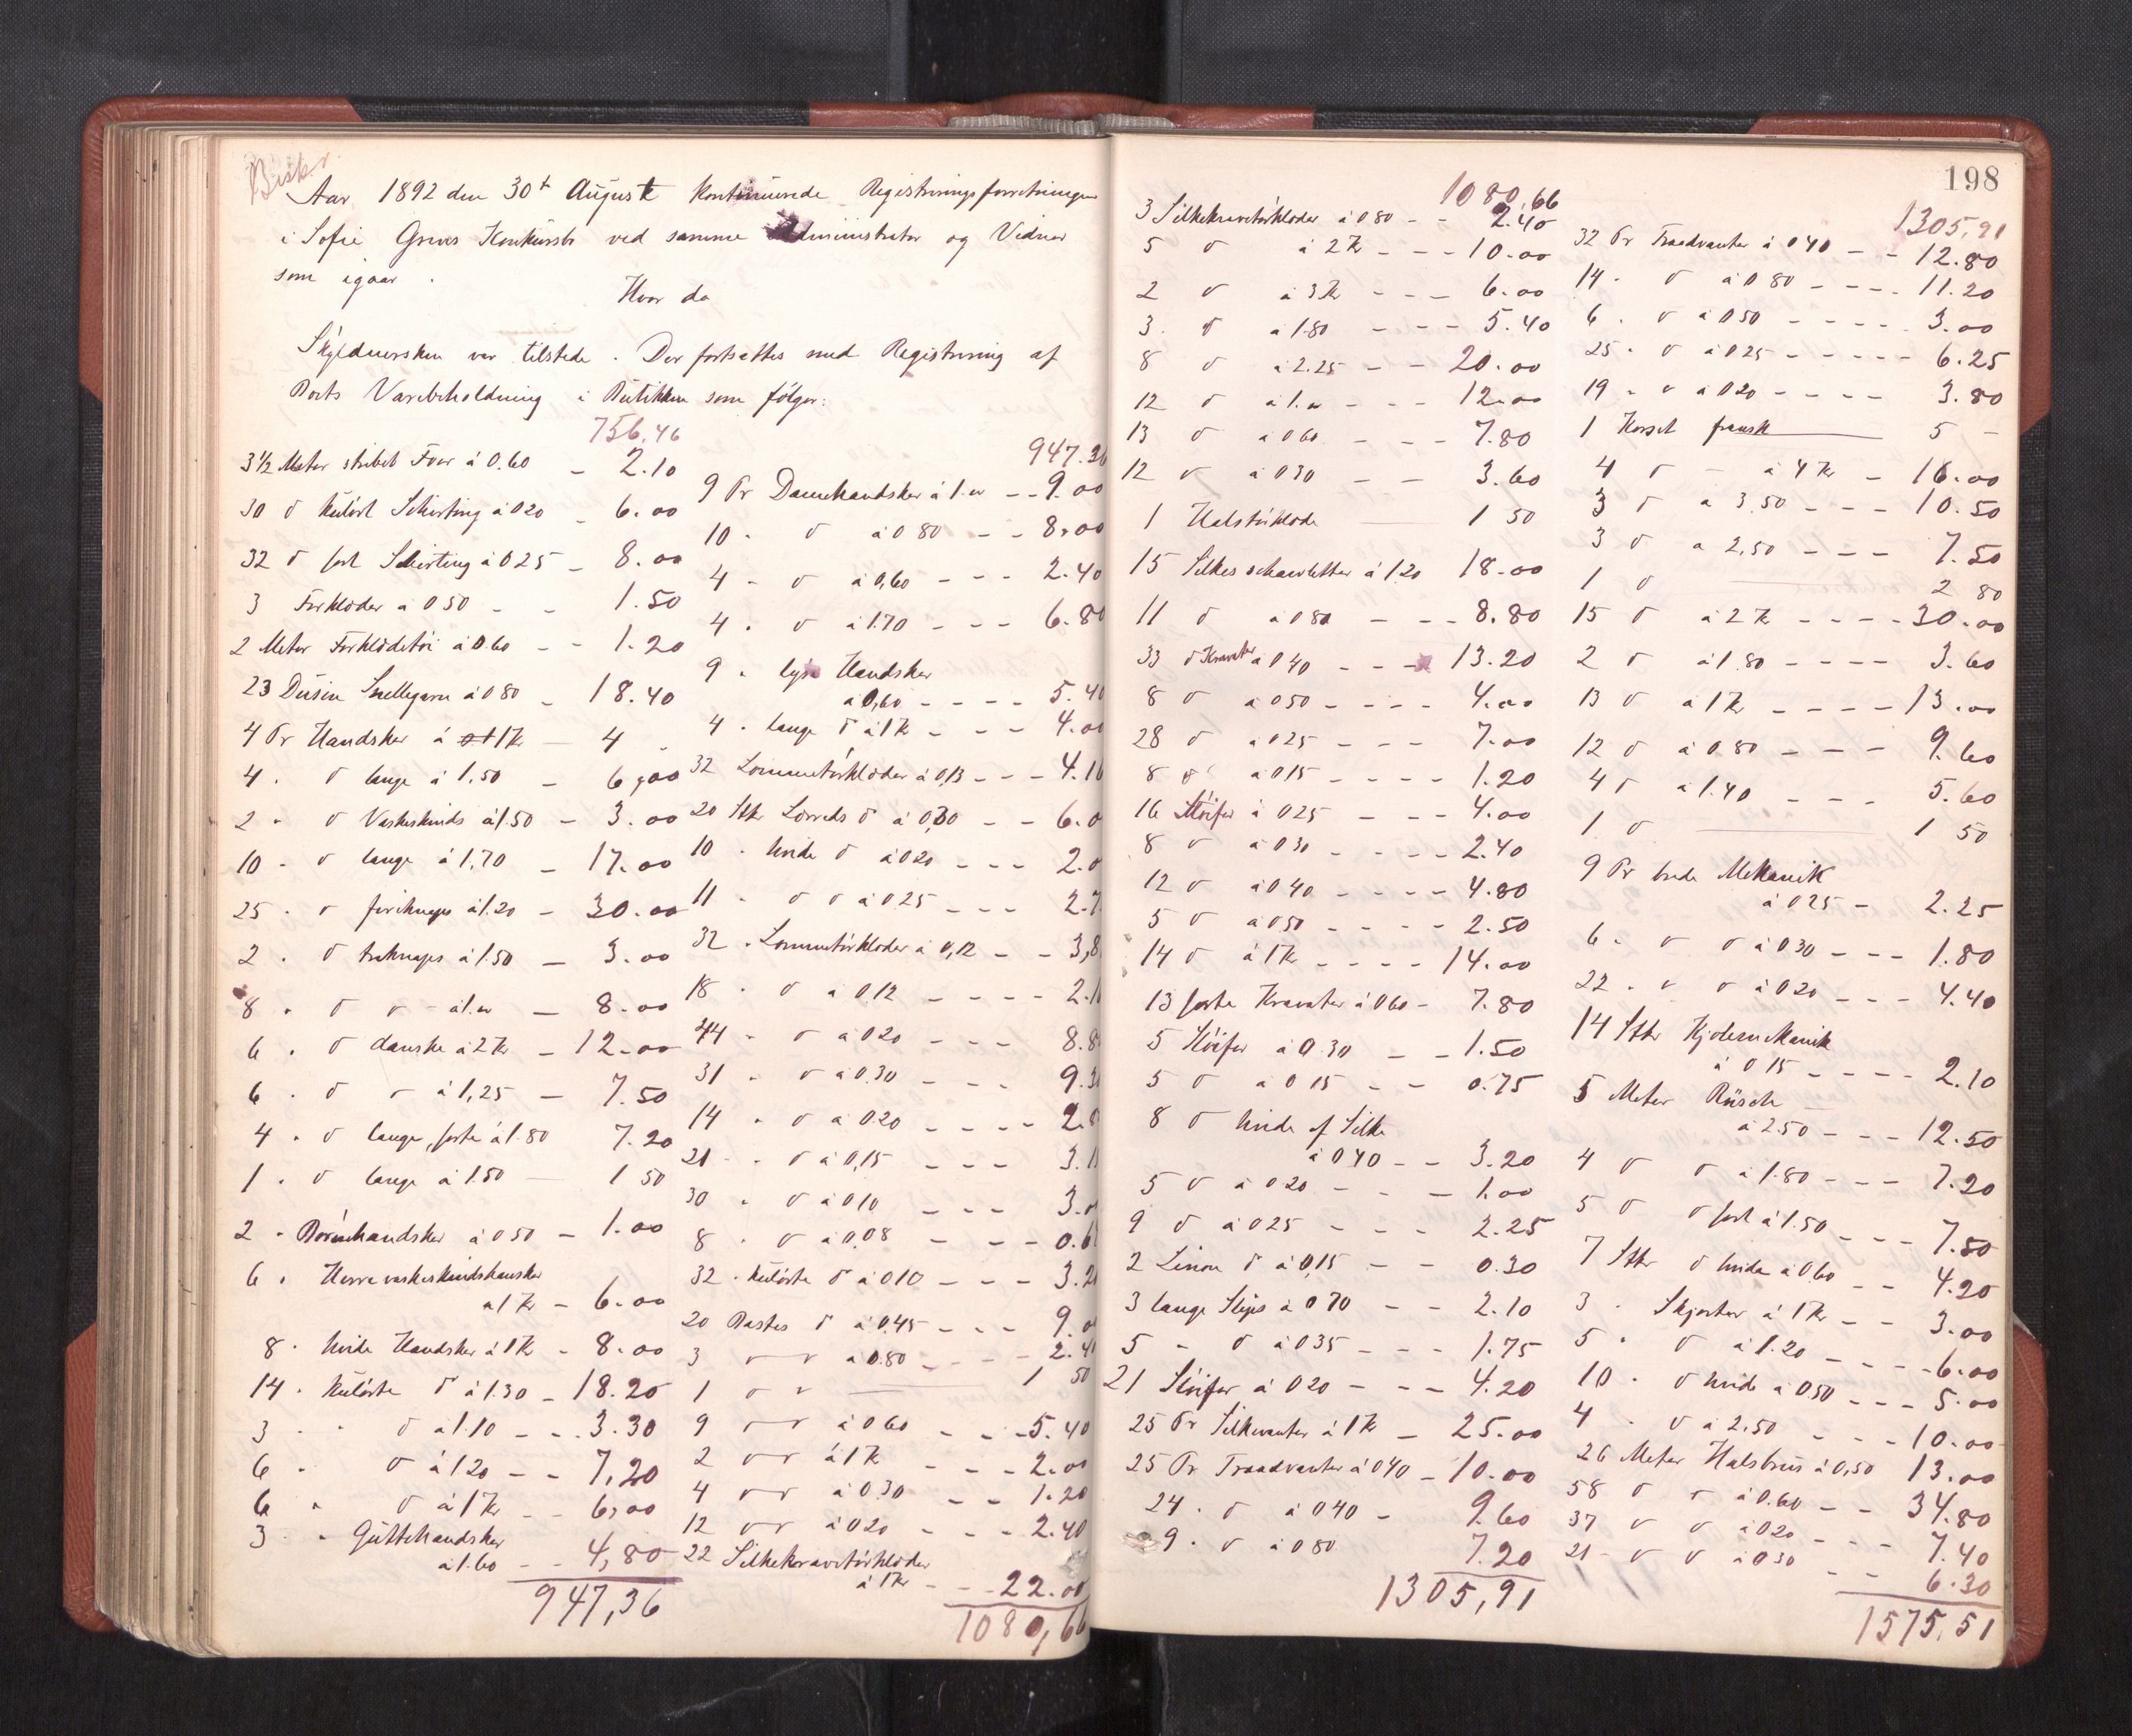 Aar 1892 den 30t August kontinuerede Registreringsforretningen
i Sofie Grives Konkursbo ved samme Administrator og Vidner
som igaar.
Hvor da
Skyldnersken var tilstede. Der fortsattes med Registrering af
Boets Varebeholdning i Butikken som følger:
756,46
3½ Meter stribet Foer á 0.60 - 2.10
30 d kulört Schirting á 0 20 - 6.00
32 d sort Schirting á 0 25 - 8.00
3 Forklæder á 0 50 - - 1.50
2 Meter Forklædetöi á 0.60 - - 1.20
23 Dusin Snellegarn á 0 80 - 18.40
4 Pr Handsker á 1 Kr - 4 -
4 . d lange á 1,50 - 6,00
2 " d Vaskeskinds á 1.50 - 3.00
10 - d lange á 1,70 - 17.00
25 - d fireknaps á 1.20 - 30.00
2 . d treknaps á 1.50 - 3.00
8 . d d - á 1.00 - 8.00
6 . d danske á 2 Kr - 12.00
6 . d d á 1,25 - 7.50
4 . d lange, sorte á 1.80 7.20
1 . d lange á 1.50 - 1 50
2 - Börnehandsker á 0 50 - 1.00
6 . Herrevaskeskindshansker
á 1 Kr - 6.00
8 . hvide Handsker á 1 Kr - 8.00
14 . kulörte d á 1.30 - 18.20
3 - - d á 1.10 - - 3.30
6 - d á 1 20 - - 7,20
6 " d á 1 Kr - - 6,00
3 . " Guttehandsker
á 1.60 - - 4,80
947,36
947.36
9 Pr Damehandsker á 1.00 - - 9.00
10 - d á 0 80 - - 8.00
4 - d á 0,60 - - - 2.40
4 . d á 1.70 - - - 6.80
9 " lyse Handsker
á 0,60 - - - - 5.40
4 . lange d á 1 Kr - - - 4.00
32 Lommetörklæder á 0,13 - - - 4.16
20 Stkr Lærreds d á 0,30 - - 6.0
10 . hvide d á 0 20 - - - 2.0
11 - d d á 0 25 - - - 2.7
32 . Lommetörklæder á 0,12 - - 3,8
18 . d á 0.12 - - - - 2.1
44 - d á 0 20 - - - 8.8
31 - d á 0.30 - - - 9.3
14 " d á 0.20 - - - - 2.8
21 - " d á 0,15 - - - 3.1
30 " d á 0 10 - - - 3.0
8 . d á 0,08 - - - 0.6
32 . kulörte d á 0 10 - - - 3.2
20 Bastes d á 0.45 - - - 9.0
3 d d á 0.80 - - - - 2.4
1 d d - 1 50
9 d d á 0 60 - - - 5.40
2 d d á 1 Kr - - - 2.00
4 d d á 0.30 - - 1.20
12 d d á 0 20 - - - 2.40
22 Silkekravetörklæder
á 1 Kr - - - 22.00
1080,66
198
1080,66
3 Silkekravetörklæder á 0 80 - - 2.40
5 d á 2 Kr - - - 10.00
2 d á 3 Kr - - - 6.00
3. d á 1.80 - - - - 5.40
8 d á 2.25 - - 20.00
12 d á 1.00 - - - 12.00
13 d á 0 60 - - - 7.80
12 d á 0 30 - - 3.60
1 Halstörklæde 1 50
15 Silkes á 1.20 18.00
11 d á 0 80 - - - 8.80
33 d Kravatter á 0 40 - - - 13.20
8 d á 0 50 - - - - 4.00
28 d á 0 25 - - - 7.00
8 d á 0 15 - - - - 1.20
16 Slöifer á 0 25 - - - 4.00
8 d á 0 30 - - - - 2.40
12 d á 0 40 - - - - 4.80
5 d á 0 50 - - - - 2.50
14 d á 1 Kr - - - - 14.00
13 sorte Kravater á 0 60 - 7.80
5 Slöifer á 0 30 - - 1.50
5 d á 0 15 - - 0.75
8 d hvide af Silke
á 0 40 - - 3.20
5 d á 0 20 - - - 1.00
9 d á 0 25 - - - 2.25
2 Linon d á 0,15 - - 0.30
3 lange Slips á 0 70 - - 2.10
5 - d á 0 35 - - - 1.75
21 Slöifer á 0 20 - - - 4.20
25 Pr Silkevanter á 1 Kr - 25.00
25 Pr Traadvanter á 0 40 - 10.00
24 . d á 0 40 - 9.60
9 . d á 0 80 7.20
1305,91
1305,91
32 Pr Traadvanter á 0 40 - - 12.80
14 . d á 0 80 - - - - 11.20
6 . d á 0 50 - - - - 3.00
25 . d á 0 25 - - - - - 6.25
19 " d á 0 20 - - - - 3.80
1 Korset fransk 5 -
4 d - á 4 Kr - 16.00
3 d á 3,50 - - - 10.50
3 d á 2,50 - - - 7.50
1 d 2 80
15 d á 2 Kr - - - - 30.00
2 d á 1.80 - - - - 3.60
13 d á 1 Kr - - - - 13.00
12 d á 0.80 - - - 9.60
4 d á 1.40 - - - 5.60
1 d 1 50
9 Pr brede Mekanik
á 0 25 - 2.25
6 . d d á 0 30 - - - 1.80
22 . d d á 0 20 - - - 4.40
14 Stkr Kjolemekanik
á 0 15 - - - - 2.10
5 Meter Rüsch
á 2.50 - - - 12.50
4 d d á 1.80 - - - 7.20
5 d d sort á 1.50 - - - 7.50
7 Stkr d hvide á 0,60 - - 4.20
3 . Skjorter á 1 Kr - - 3.00
5 . d á 1.20 - - - - 6.00
10 . d hvide á 0.50 - - - 5.00
4 . d á 2,50 - - - 10.00
26 Meter Halsbrus á 0,50 13.00
58 d d á 0.60 - - 34.80
37 d d á 0 20 - - - 7.40
21 - d d á 0 30 - - 6.30
1575,51